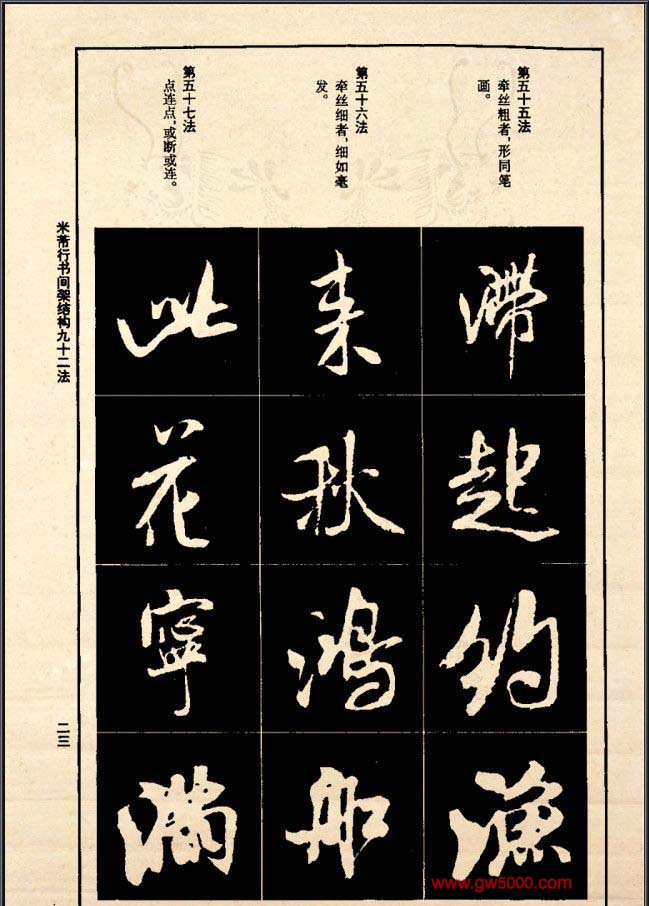 第五十五法
牵丝粗者，形同笔
画。
滯起約漁
第五十六法
牵丝细者，细如毫
发。
来秋鴻船
第五十七法
点连点，或断或连。
此花寧滿
米芾行书间架结构九十二法
二三
www.gw5000.com